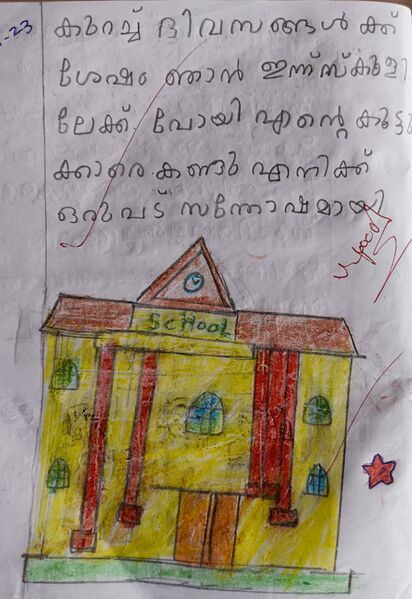 -23
കുറച്ച് ദിവസങ്ങൾ ക്ക്
ശേഷം ഞാൻ ഇന്ന് സ്കൂളി
ലേക്ക് പോയി എന്റെ കൂട്ടു
ക്കാരെ കണ്ടു എനിക്ക്
ഒരുപട് സന്തോഷമായി
SCHOOL